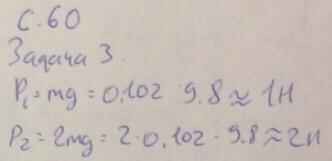 С. 60
Задача 3.
P₁=mg = 0.102 9.8 ≈ 1Н
P₂ = 2mg = 2·0.102·9.8 ≈ 2Н